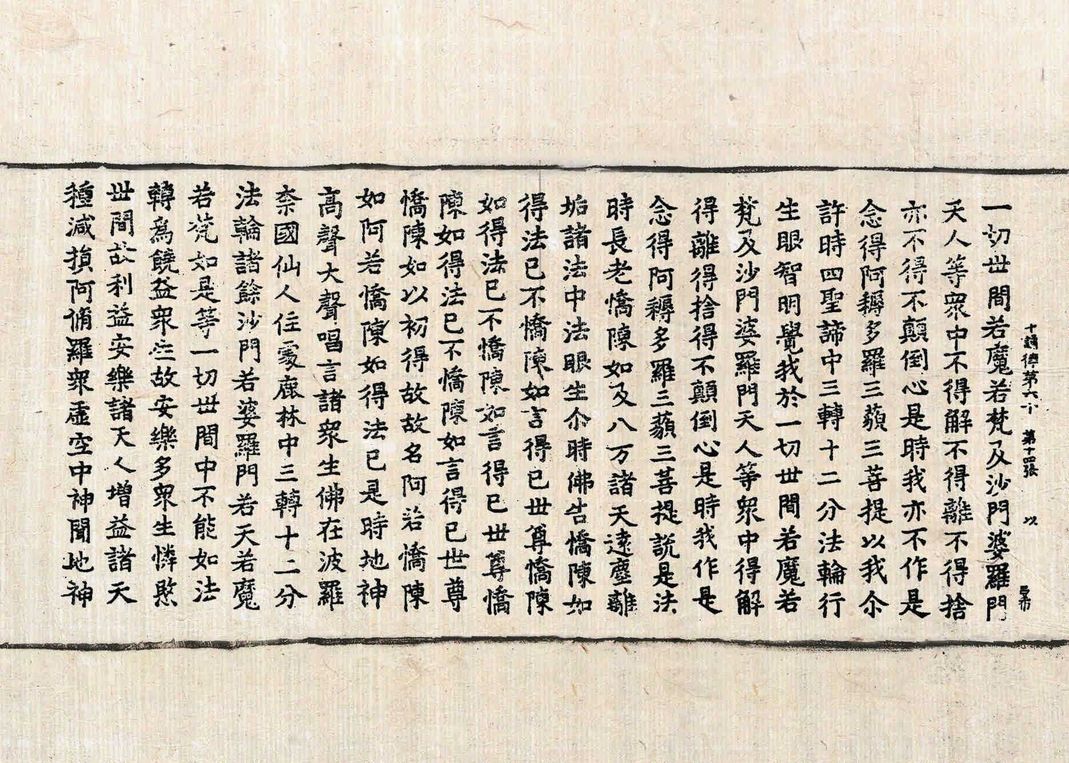 十誦律第六十 第十四張 以
一切世間若魔若梵及沙門婆羅門
天人等衆中不得解不得離不得捨
亦不得不顛倒心是時我亦不作是
念得阿耨多羅三藐三菩提以我尒
許時四聖諦中三轉十二分法輪行
生眼智明覺我於一切世間若魔若
梵及沙門婆羅門天人等衆中得解
得離得捨得不顛倒心是時我作是
念得阿耨多羅三藐三菩提說是法
時長老憍陳如及八万諸天遠塵離
垢諸法中法眼生尒時佛告憍陳如
得法已不憍陳如言得已世尊憍陳
如得法已不憍陳如言得已世尊憍
陳如得法已不憍陳如言得已世尊
憍陳如以初得故故名阿若憍陳
如阿若憍陳如得法已是時地神
高聲大聲唱言諸衆生佛在波羅
奈國仙人住處鹿林中三轉十二分
法輪諸餘沙門若婆羅門若天若魔
若梵如是等一切世間中不能如法
轉爲饒益衆生故安樂多衆生憐愍
世間故利益安樂諸天人增益諸天
種減損阿脩羅衆虛空中神聞地神